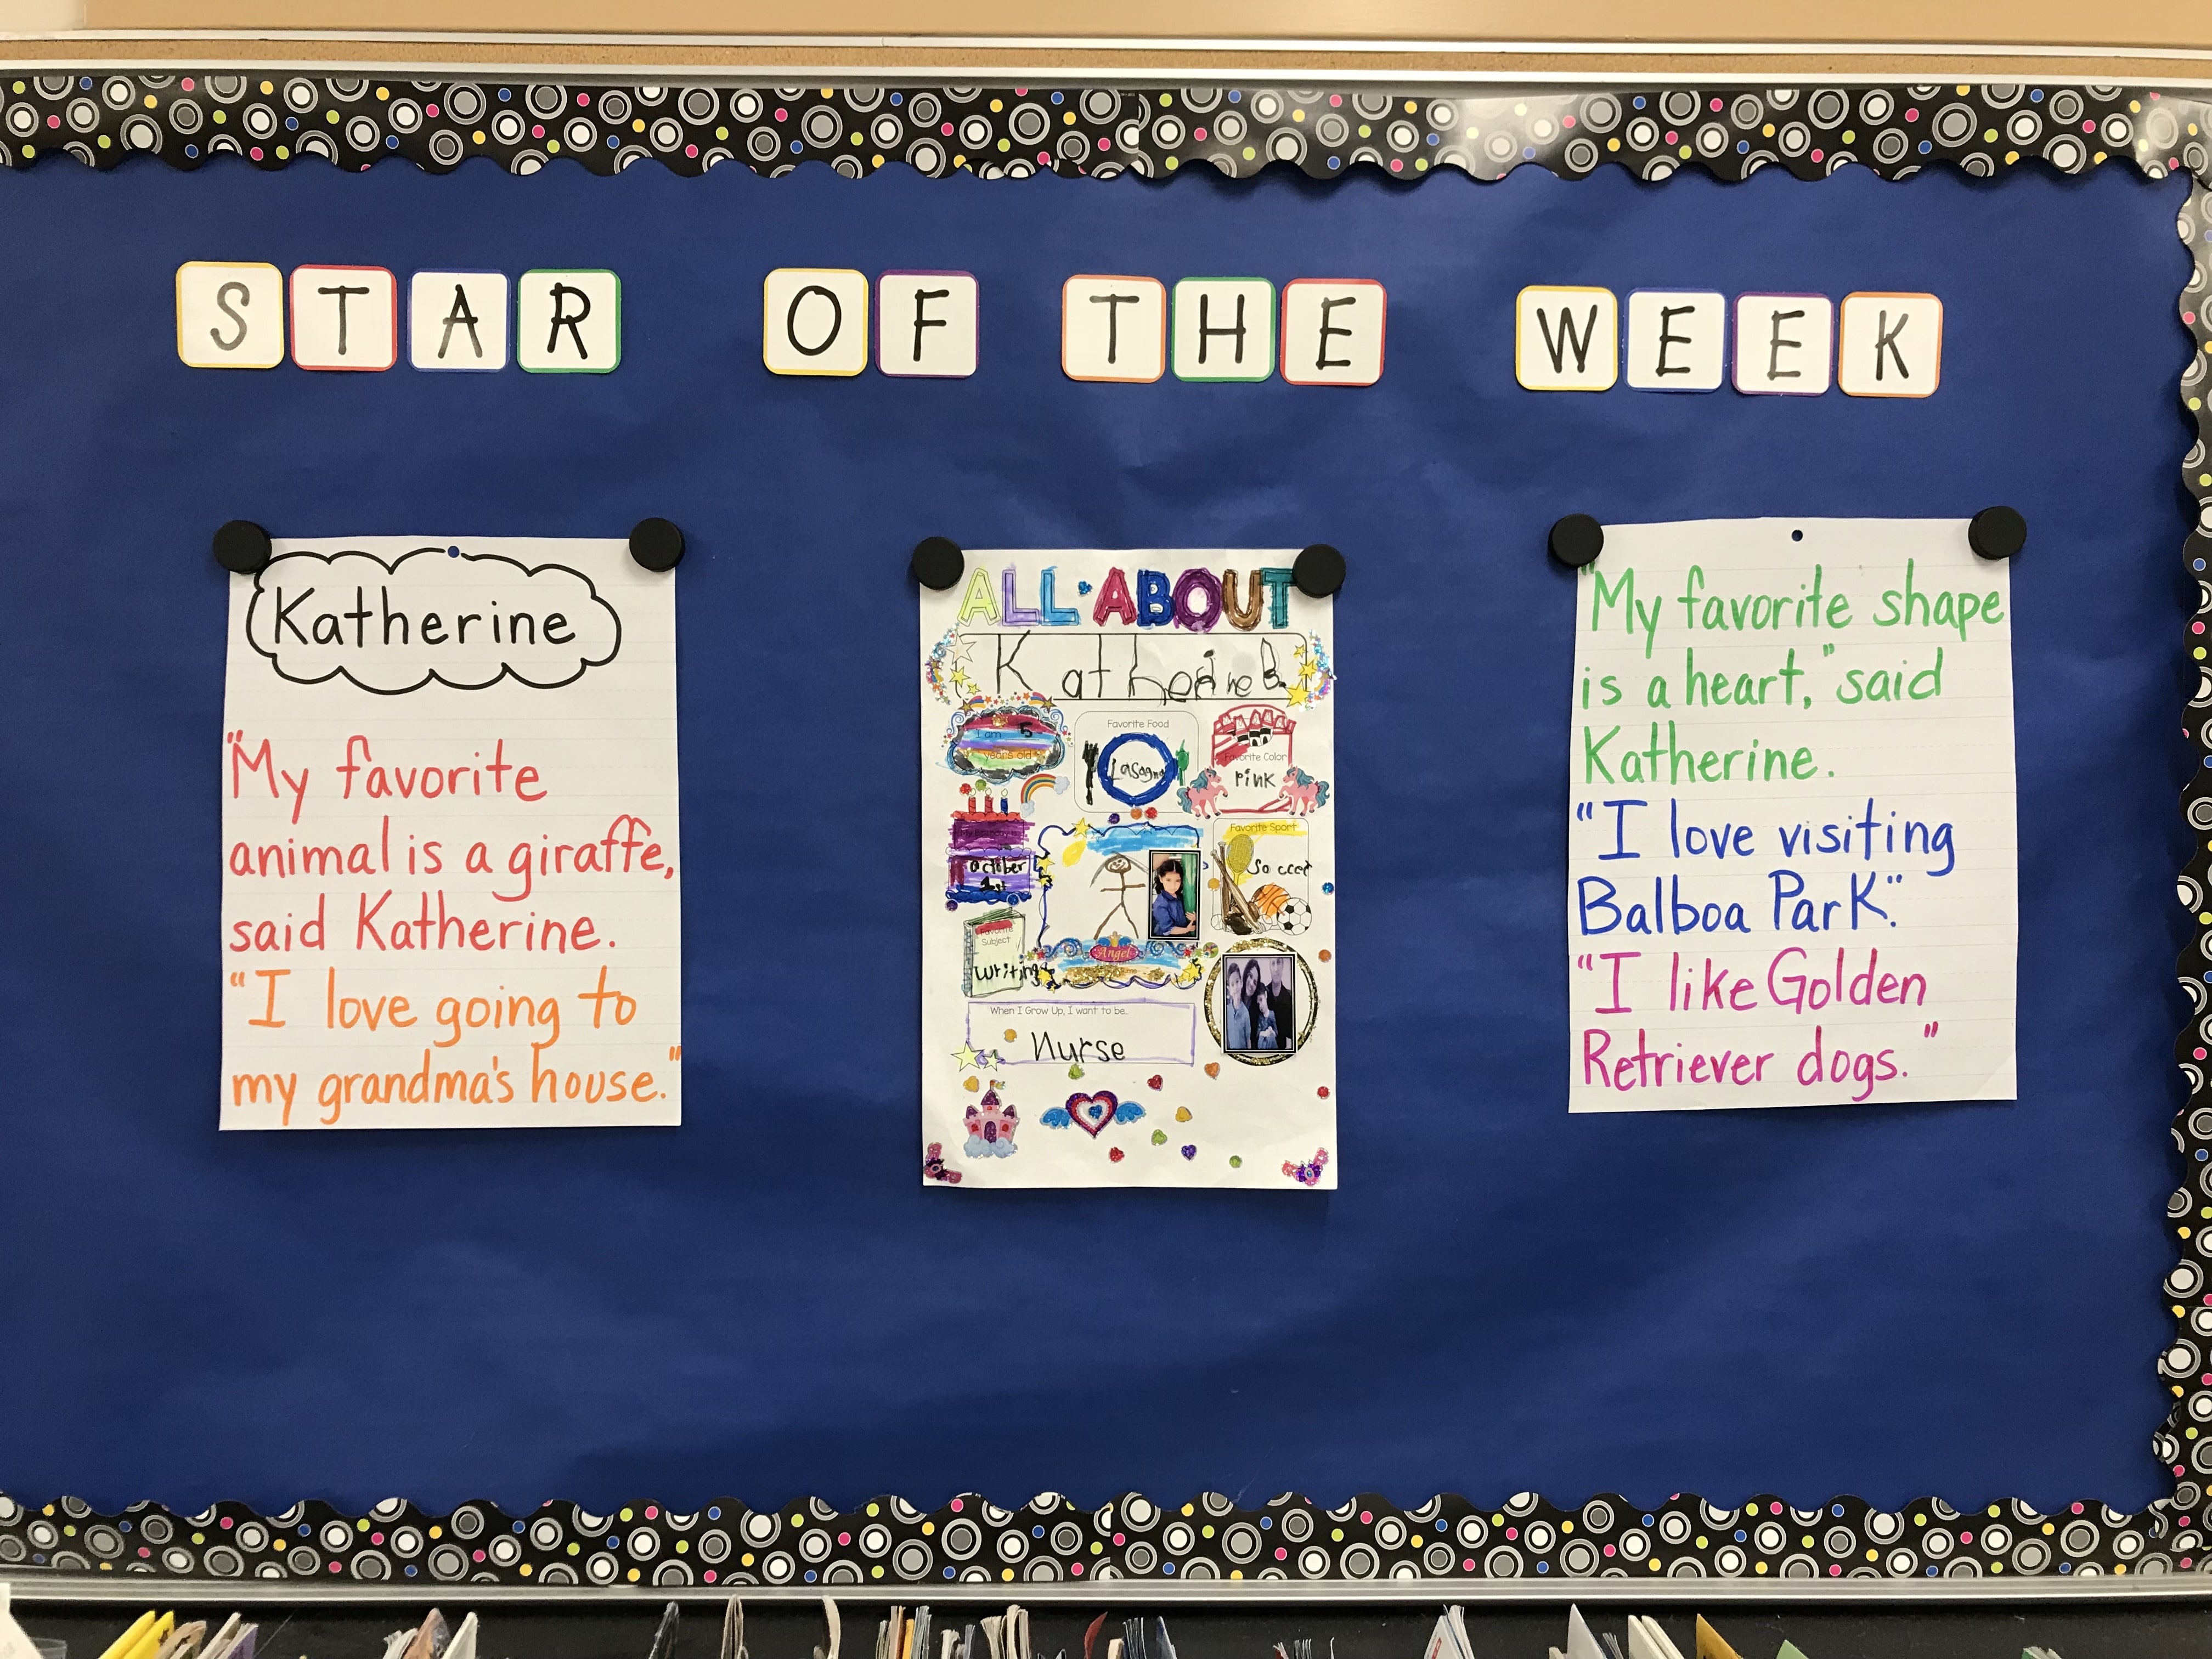 STAR OF THE WEEK
Katherine
"My favorite
animal is a giraffe,
said Katherine.
"I love going to
my grandma's house."
ALL ABOUT
Katherine B.
I am 5
years old
Favorite Food
Lasagna
Favorite Color
Pink
October
1st
Favorite Sport
Soccer
Favorite
Subject
Writing
Angel
When I Grow Up, I want to be...
Nurse
"My favorite shape
is a heart," said
Katherine.
"I love visiting
Balboa Park."
"I like Golden
Retriever dogs."